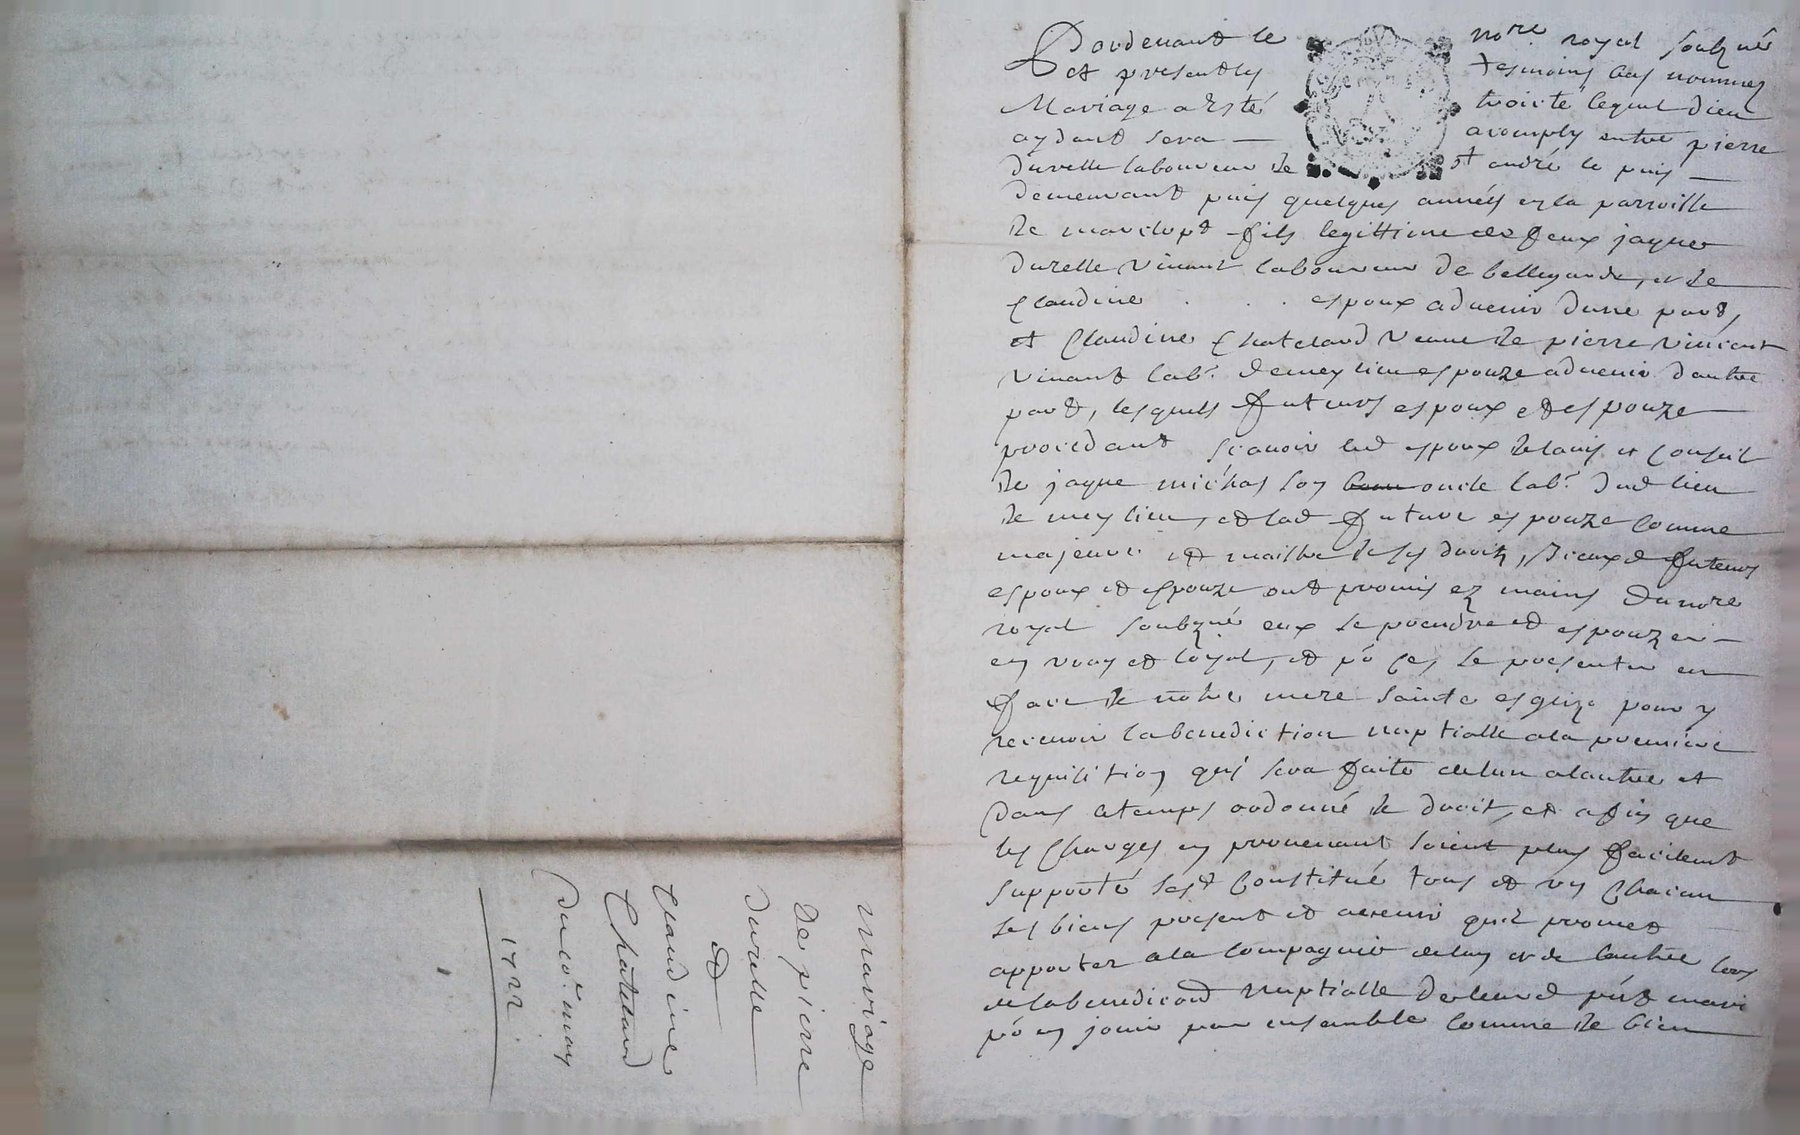 Pardevant le nore royal soubzné
et presents les tesmoins bas nommez
Mariage a esté traicté lequel dieu
aydant sera — acomply entre pierre
Durelle laboureur de st andré le puis —
demeurant puis quelques années en la parroisse
de marclopt fils legittime de feux jaques
Durelle vivant laboureur de bellegarde, et de
Claudine . . . espoux advenir dune part,
et Claudine Chateland veuve de pierre vincent
vivant labr. de meylieu espouze advenir dautre
part, lesquels futurs espoux et espouze
procedant scavoir led espoux de lavis et conseil
de jaque michas son oncle labr. dud lieu
de meylieu, et lad future espouze comme
majeure et maistre de ses droits, Iceuxd futeurs
espoux et espouze ont promis ez mains du nore
royal soubzné eux se prendre et espouzer —
en vray et loyal, et po ces se presenter en
face de notre mere sainte esglize pour y
recevoir la benediction nuptialle a la premiere
requisition qui sera faite de lun a lautre et
dans le temps ordonné de droit, et afin que
les charges en provenant soient plus facilemt
supporté sest constitué tous et un chacun
ses biens present et avenir quil promet
apporter a la compagnie de lun et de lautre lors
de la benediction nuptialle desleurd pnt mari
po en jouir par ensemble comme de bien
Mariage
De pierre
Durelle
et
Claudine
Chateland
Du 10e. may
1722.